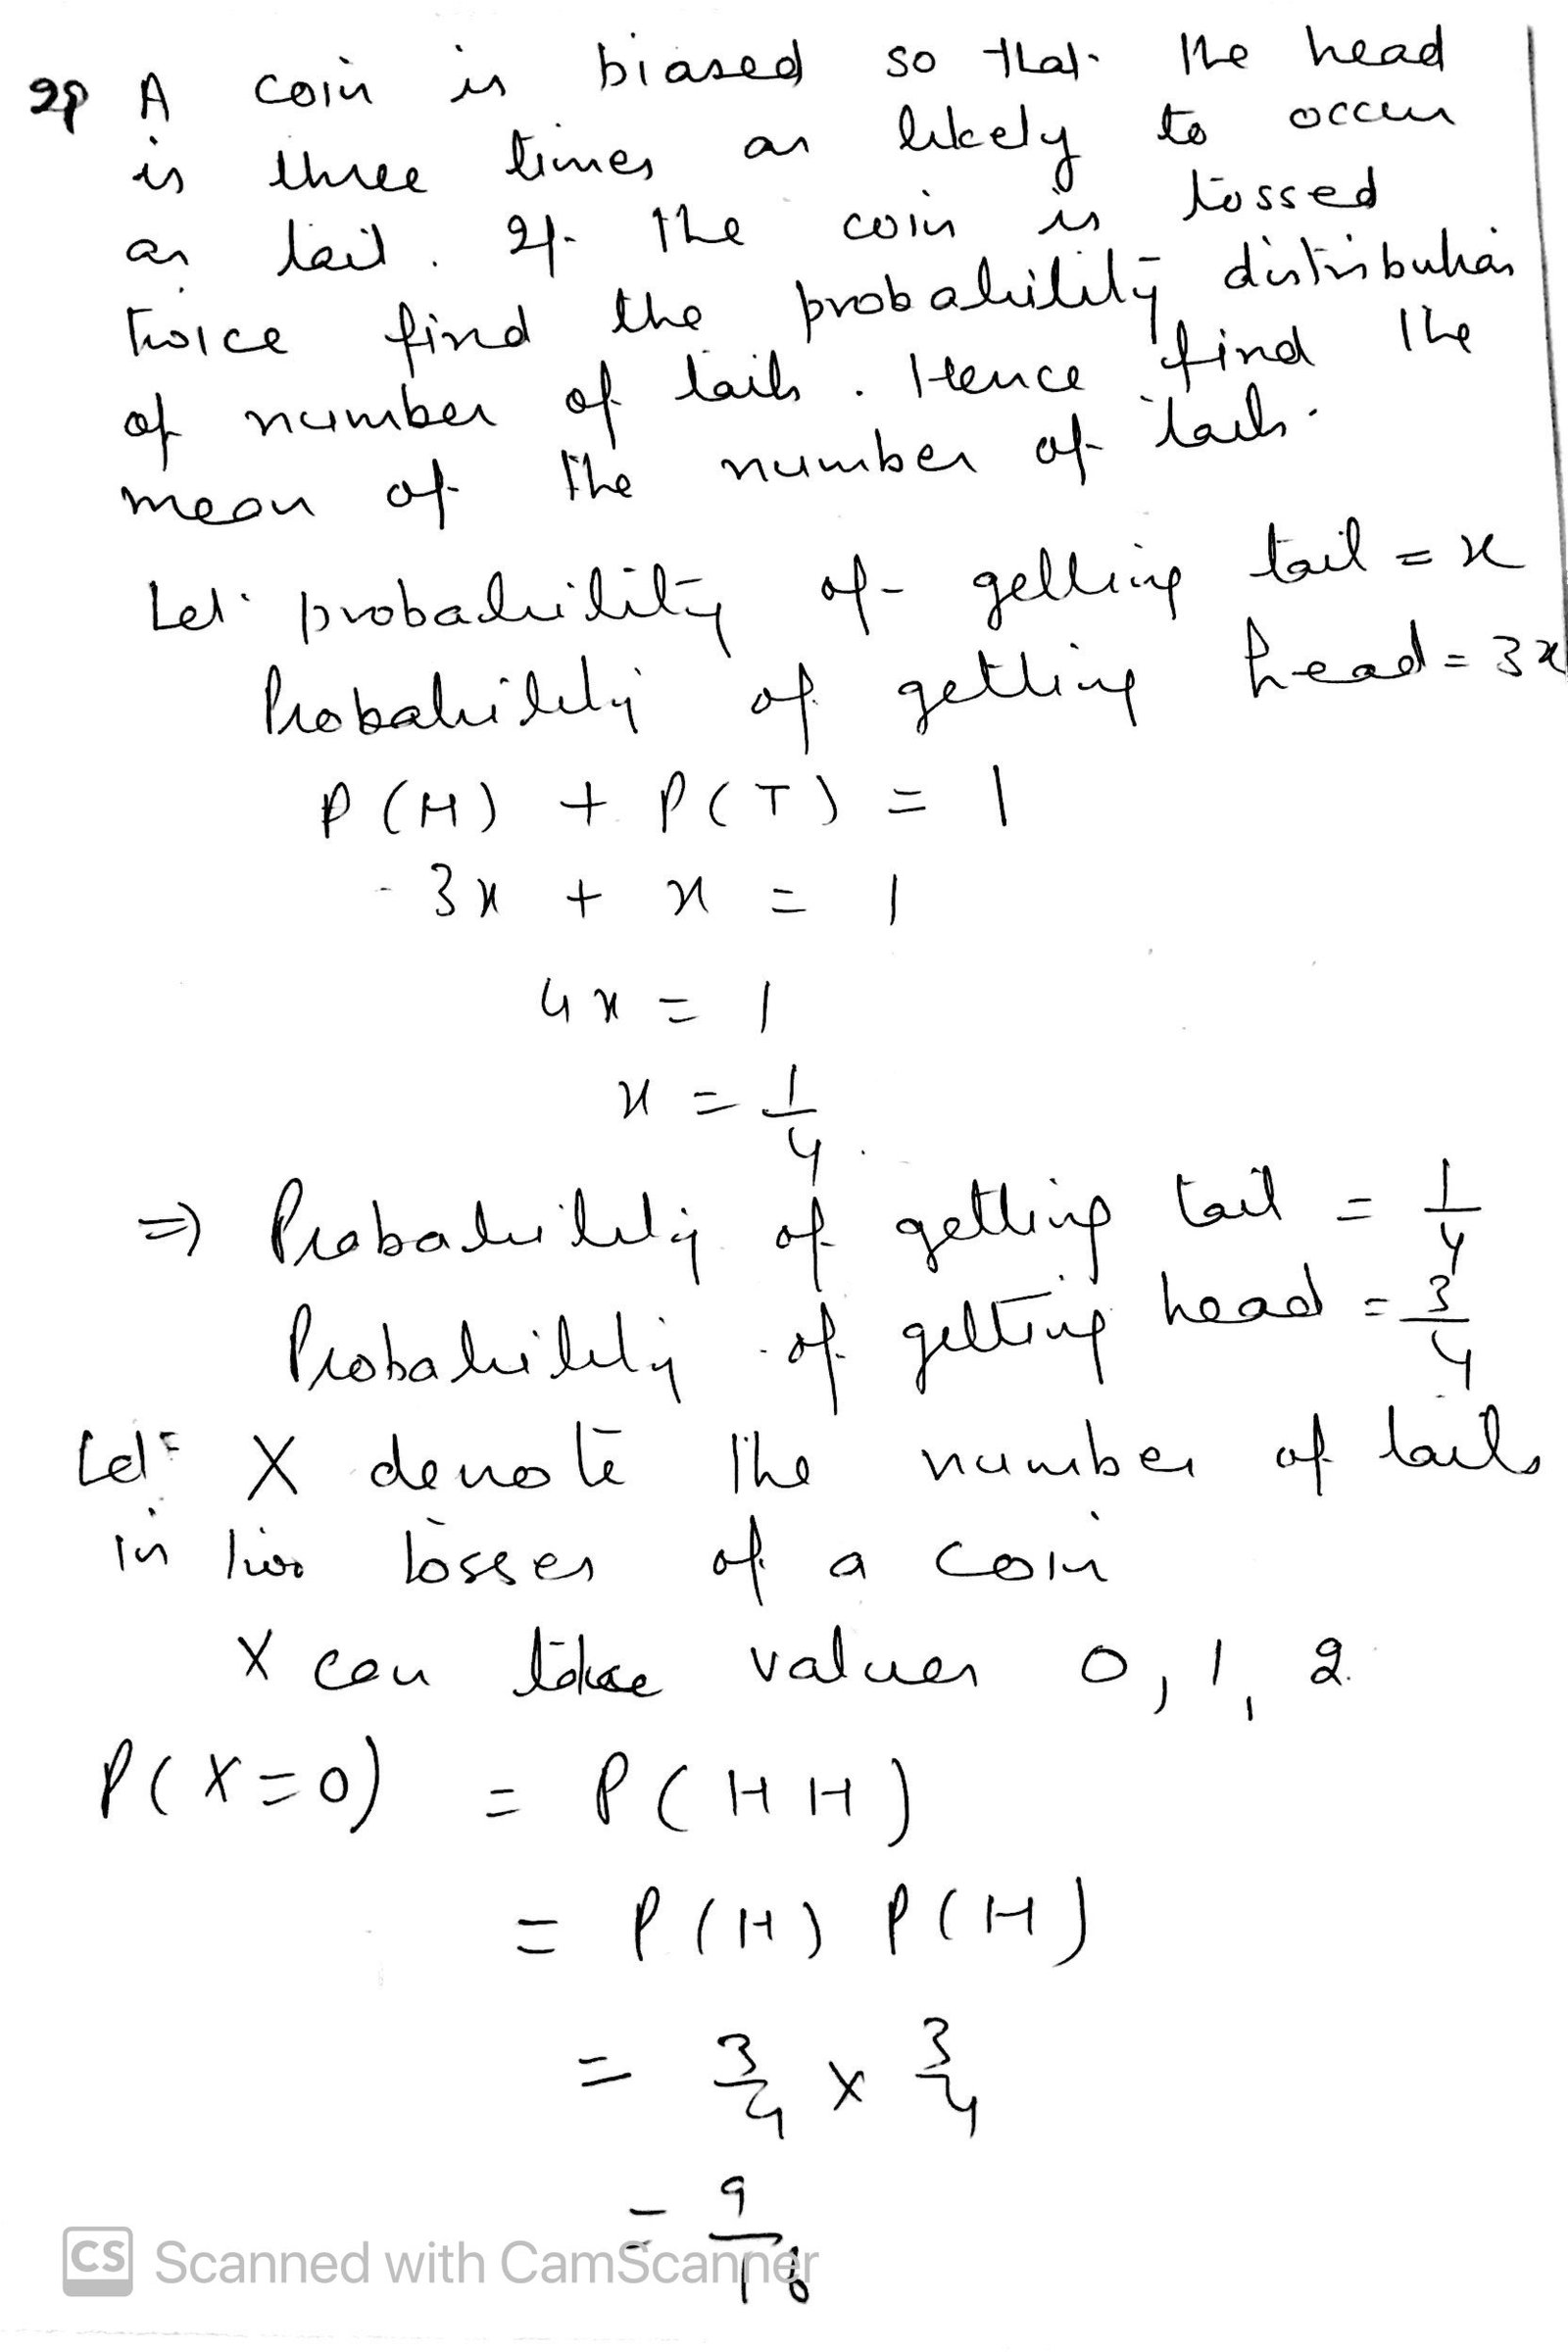 29 A coin is biased so that the head
is three times as likely to occur
as tail. If the coin is tossed
twice find the probability distribution
of number of tails. Hence find the
mean of the number of tails.
Let probability of getting tail = x
Probability of getting head = 3x
P(H) + P(T) = 1
3x + x = 1
4x = 1
x = 1/4
⇒ Probability of getting tail = 1/4
Probability of getting head = 3/4
Let X denote the number of tails
in two tosses of a coin
X can take values 0, 1, 2
P(X=0) = P(HH)
= P(H) P(H)
= 3/4 × 3/4
= 9/16
CS Scanned with CamScanner